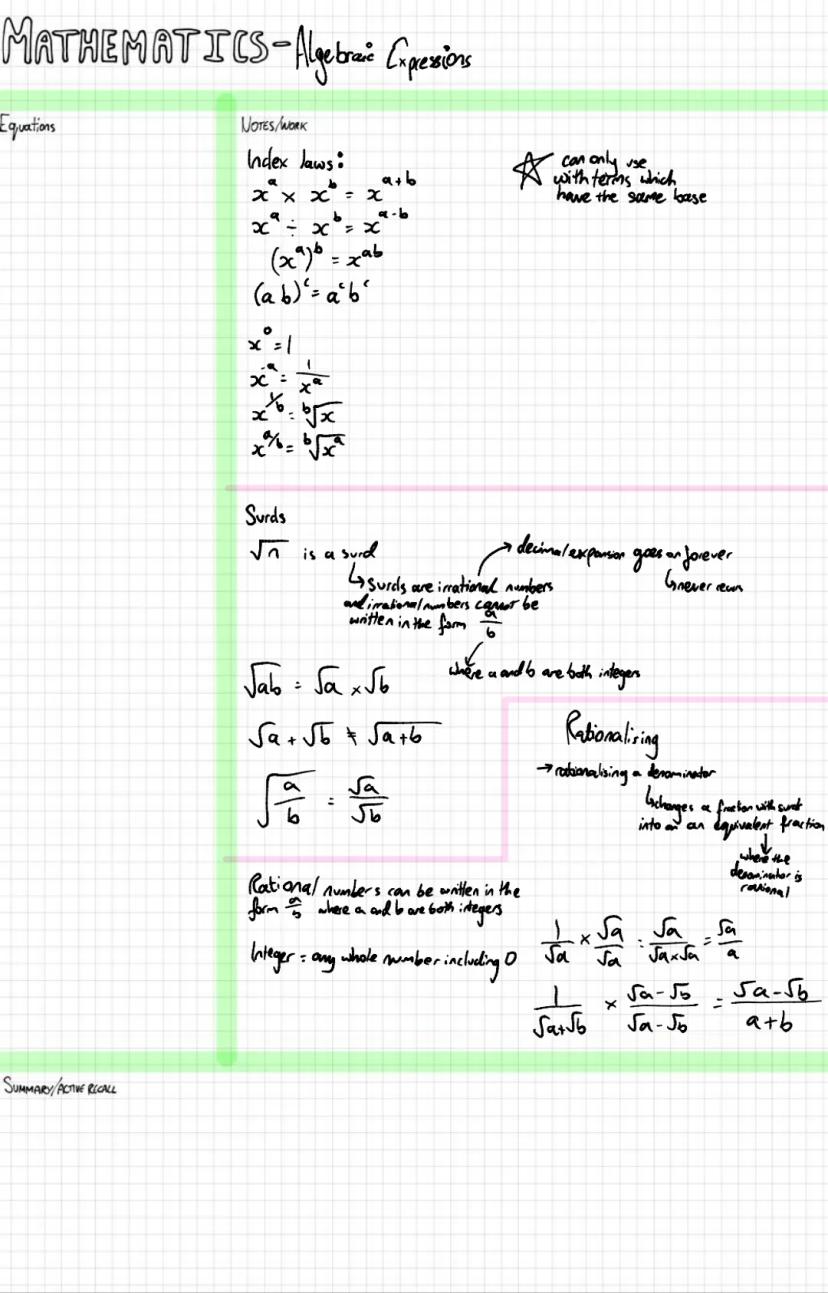 MATHEMATICS - Algebraic Expressions
Equations
NOTES/WORK
Index laws:
x^a × x^b = x^(a+b)
x^a ÷ x^b = x^(a-b)
(x^a)^b = x^(ab)
(ab)^c = a^c b^c
x^0 = 1
x^-a = 1/x^a
x^(1/b) = ᵇ√x
x^(a/b) = ᵇ√(x^a)
☆ can only use
with terms which
have the same base
Surds
√n is a surd
↳ Surds are irrational numbers
and irrational numbers cannot be
written in the form a/b
→ decimal expansion goes on forever
↳ never
where a and b are both integers
√(ab) = √a × √b
√a + √b ≠ √(a+b)
√(a/b) = √a/√b
Rationalising
→ rationalising a denominator
↳ changes a fraction with surd
into an equivalent fraction
↓
where the
denominator is
rational
Rational numbers can be written in the
form a/b where a and b are both integers
Integer = any whole number including 0
1/√a × √a/√a = √a/(√a×√a) = √a/a
1/(√a+√b) × (√a-√b)/(√a-√b) = (√a-√b)/(a+b)
SUMMARY/ACTIVE RECALL